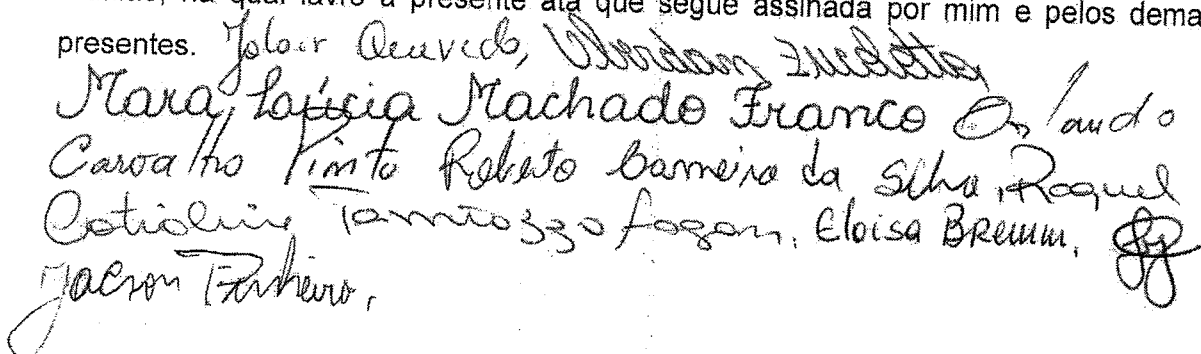 na qual lavro a presente ata que segue assinada por mim e pelos dema
presentes. Jolair Quevedo,
Mara Lúcia Machado Franco Orlando
Carvalho Pinto Roberto Carneiro da Silva, Raquel
Tamiozzo Fogan, Eloisa Bremm,
Jacson Pinheiro,